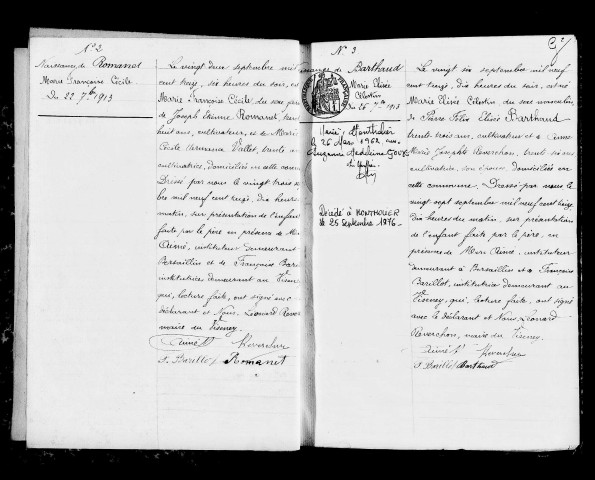 N° 2
Naissance de Romanet
Marie Françoise Cécile
Du 22 7bre 1913
Le vingt deux septembre mil
cent treize, six heures du soir, est
Marie Françoise Cécile du sexe
de Joseph Etienne Romanet,
huit ans, cultivateur, et de Marie
Cécile Vallet, trente
cultivatrice, domiciliés en cette com
Dressé par nous le vingt trois
bre mil neuf cent treize, dix heures
matin, sur présentation de l'enfant
faite par le père, en présence de
Aimé, instituteur demeurant
Bersaillin et de Françoise Bari
institutrice demeurant au
qui, lecture faite, ont signé avec
déclarant et Nous, Léonard Rever
maire du Visney.
Aimé Reverchon
F. Barillot Romanet
N° 3
Barthaud
Marie Elisée
Célestin
Du 26 7bre 1913
Marié à Montholier
le 26 Mars 1962 avec
Suzanne Madeleine
Décédé à MONTHOLIER
le 25 septembre 1976.
Le vingt six septembre mil neuf
cent treize, dix heures du soir, est né
Marie Elisée Célestin du sexe masculin
de Pierre Félix Elisée Barthaud
trente trois ans, cultivateur et de
Marie Josephte Reverchon, trente six ans
cultivatrice, son épouse, domiciliés en
cette commune. Dressé par nous le
vingt sept septembre mil neuf cent treize
dix heures du matin, sur présentation
de l'enfant faite par le père, en
présence de Aimé, instituteur
demeurant à Bersaillin et de Françoise
Barillot, institutrice demeurant au
Visney, qui, lecture faite, ont signé
avec le déclarant et Nous Léonard
Reverchon, maire du Visney.
Aimé Reverchon
F. Barillot Barthaud